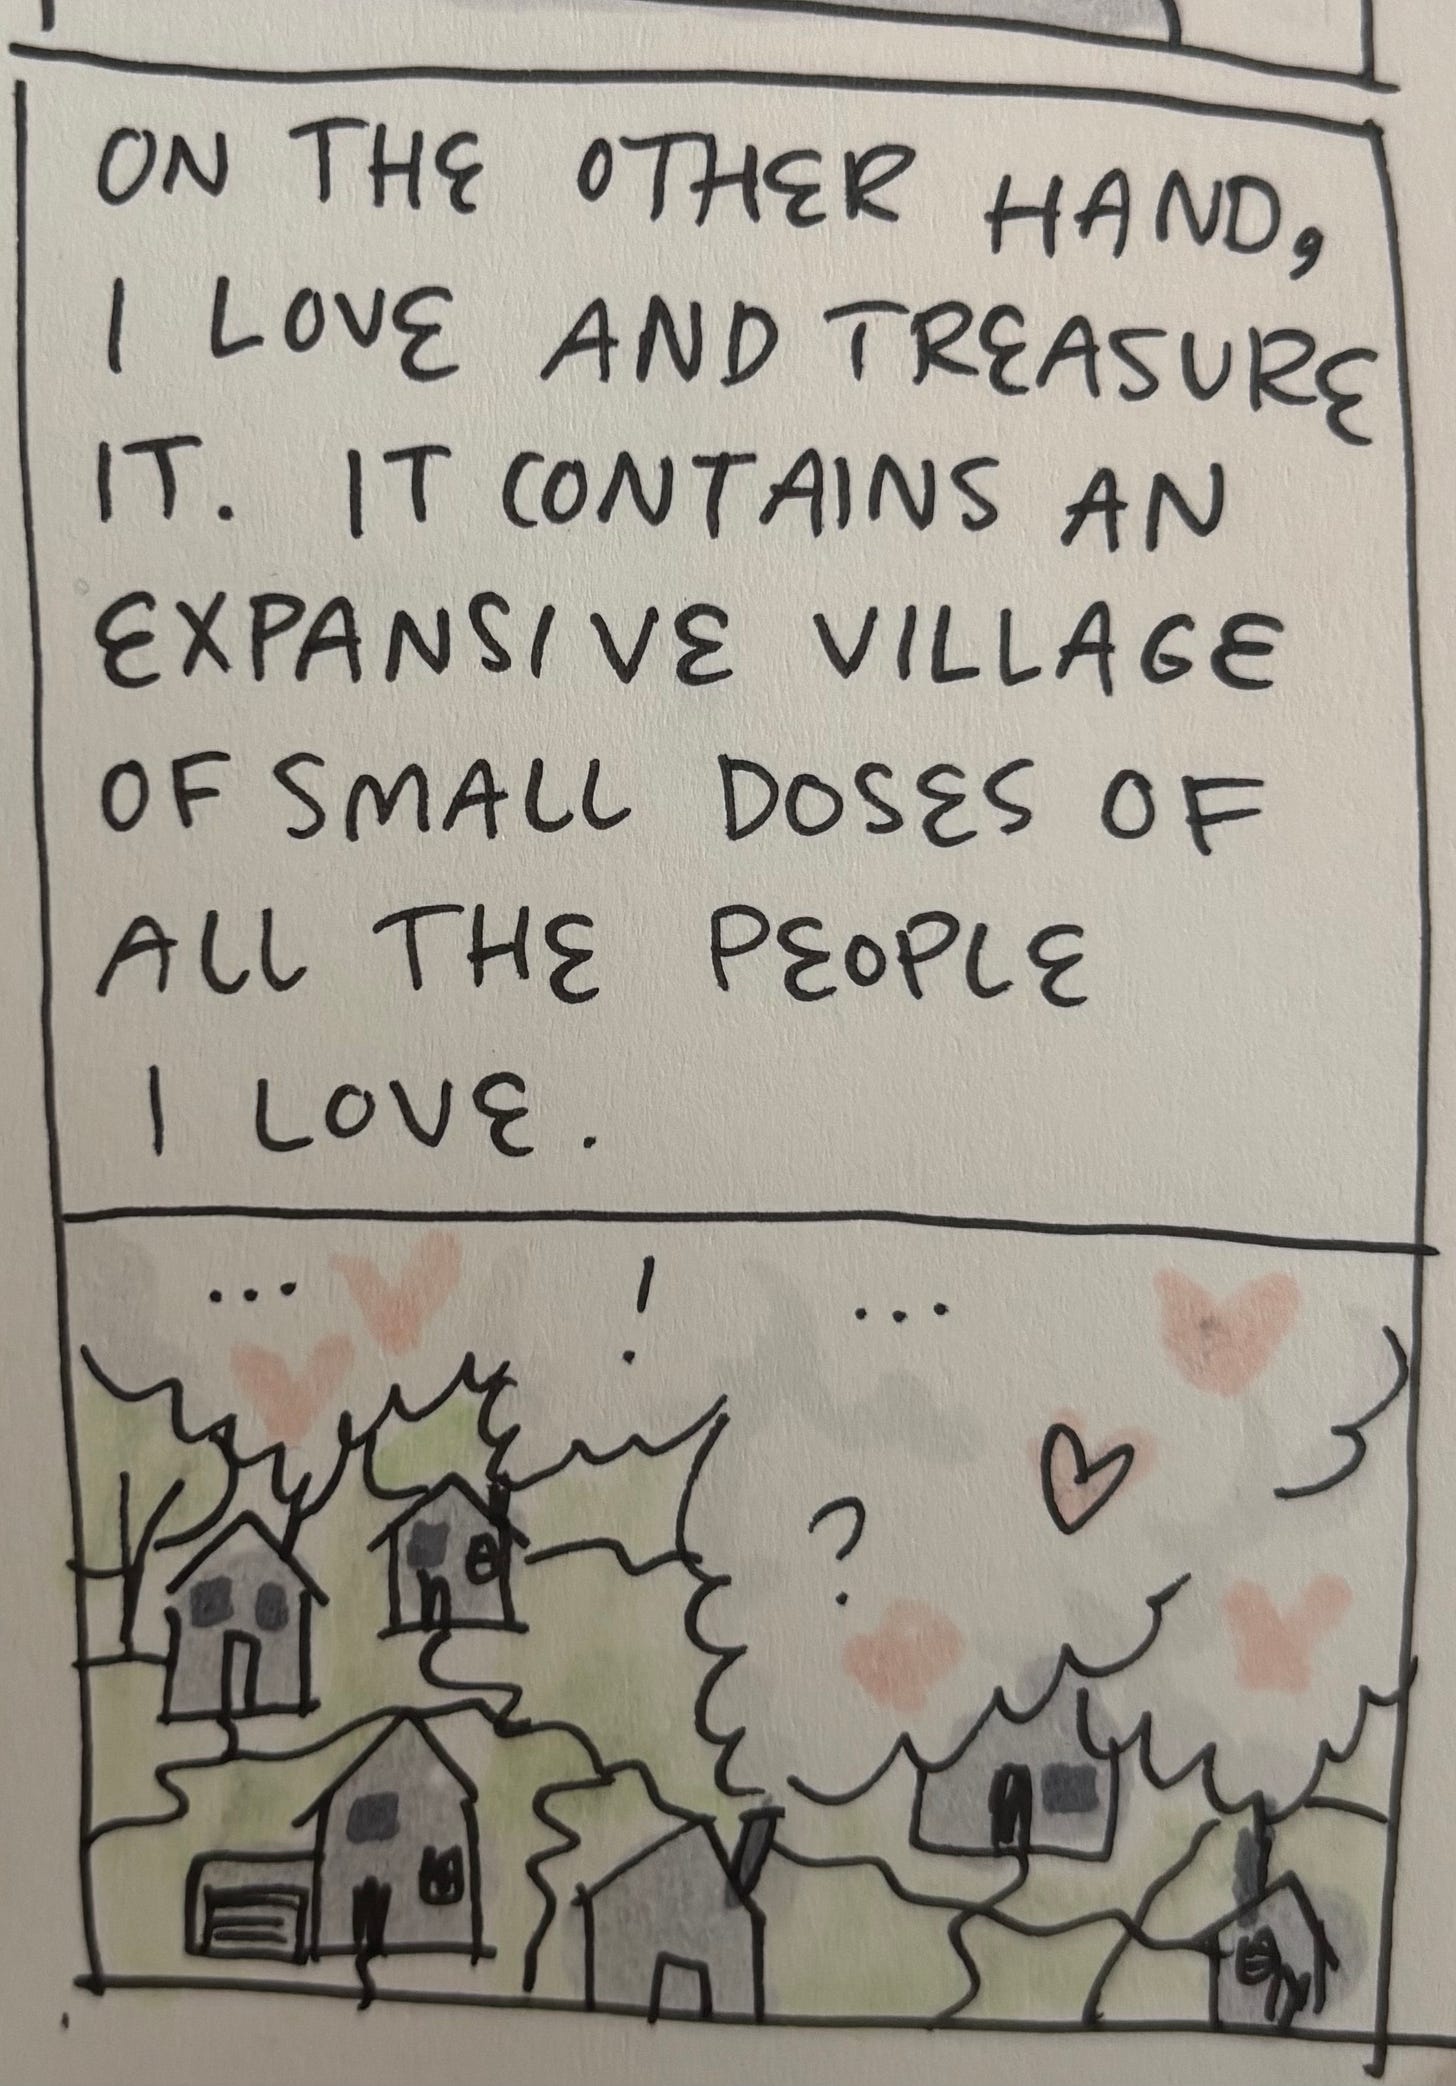 ON THE OTHER HAND,
I LOVE AND TREASURE
IT. IT CONTAINS AN
EXPANSIVE VILLAGE
OF SMALL DOSES OF
ALL THE PEOPLE
I LOVE.
... ! ...
?